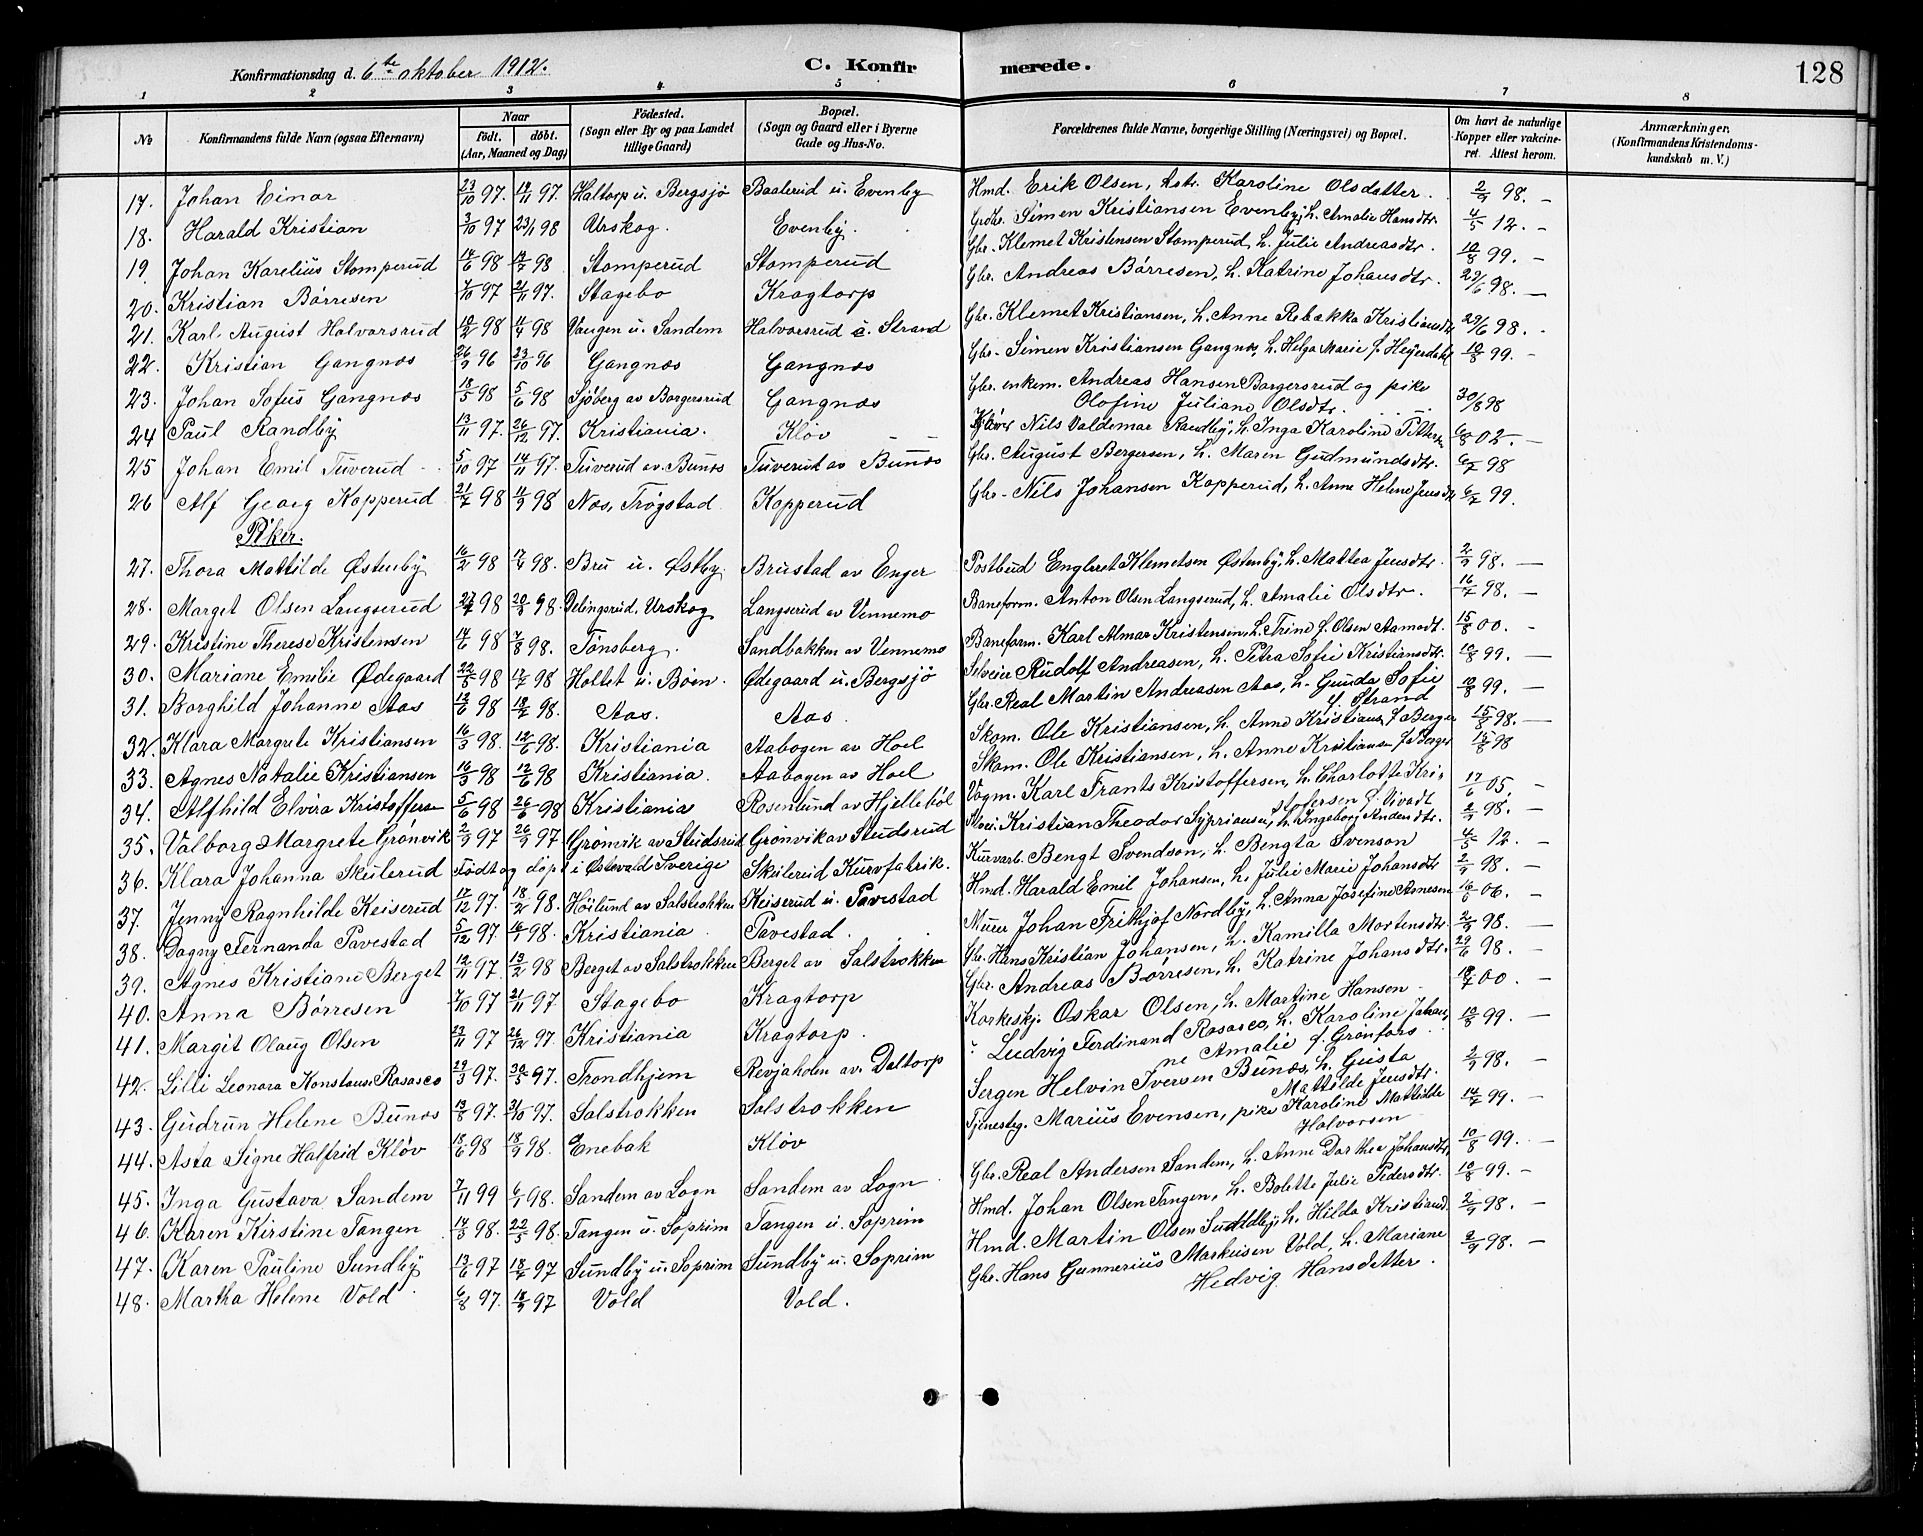 Konfirmationsdag d. 6te oktober 1912.
C. Konfir merede.
128
1 2 3 4 5 6 7 8
No
Konfirmandens fulde Navn (ogsaa Efternavn)
Naar
født. døbt.
(Aar, Maaned og Dag)
Fødested.
(Sogn eller By og paa Landet
tillige Gaard)
Bopæl.
(Sogn og Gaard eller i Byerne
Gade og Hus-No.
Forældrenes fulde Navne, borgerlige Stilling (Næringsvei) og Bopæl.
Om havt de naturlige
Kopper eller vakcine-
ret. Attest herom.
Anmærkninger.
(Konfirmandens Kristendoms-
kundskab m. V.)
17. Johan Einar 23/10 97. 14/11 97. Haltorp u. Bergsjø Baalerud u. Evenby Hmd. Erik Olsen, hstr. Karoline Olsdatter. 2/9 98. -
18. Harald Kristian 3/10 97 23/1 98 Urskog. Evenby. Grdbr. Simen Kristiansen Evenby, h. Amalie Hansdtr. 4/5 12. -
19. Johan Karelius Stomperud 14/6 98 17/7 98 Stomperud Stomperud Gbr. Klemet Kristensen Stomperud, h. Julie Andreasdtr. 10/8 99. -
20. Kristian Børresen 7/10 97 21/11 97. Stagebo Kragtorp Gbr. Andreas Børresen, h. Katrine Johansdtr. 29/6 98. -
21. Karl August Halvarsrud 10/2 98 11/4 98 Vangen u. Sandem Halvorsrud u. Strand Gbr. Klemet Kristiansen, h. Anne Rebekka Kristiansdtr. 29/6 98. -
22. Kristian Gangnæs 26/9 96 23/10 96 Gangnæs Gangnæs Gbr. Simen Kristiansen Gangnæs, h. Helga Marie f. Heyerdahl 10/8 99. -
23. Johan Sofus Gangnæs 18/5 98 5/6 98 Sjøberg av Borgersrud Gangnæs Gbr. enkem. Andreas Hansen Borgersrud og pike
Olofine Juliane Olsdtr. 30/8 98
24 Paul Randby 13/11 97. 26/12 97. Kristiania. Kløv Nils Valdemar Randby, h. Inga Karoline 6/8 02. -
25 Johan Emil Tuverud 5/10 97 14/11 97. Tuverud av Bunæs Tuverud av Bunæs Gbr. August Bergersen, h. Maren Gudmundsdtr. 6/7 98
26 Alf Georg Kopperud 21/7 98 11/9 98 Næs, Trøgstad Kopperud Gbr. Nils Johansen Kopperud, h. Anne Helene Jensdtr. 6/7 99.
Piker.
27. Thora Mathilde Østenby 16/2 98 17/4 98. Bru u. Østby. Brustad av Enger Postbud Englret Klemetsen Østenby, h. Mathea Jensdtr. 2/9 98. -
28. Marget Olsen Langserud 27/4 98 20/3 98 Delingsrud, Urskog Langserud av Vennemo Baneform. Anton Olsen Langserud, h. Amalie Olsdtr. 16/7 98. -
29. Kristine Therese Kristensen 14/6 98 7/8 98. Tønsberg. Sandbakken av Vennemo Baneform. Karl Almar Kristensen, h. Trine f. Olsen Aamodt. 15/8 00. -
30. Mariane Emilie Ødegaard 22/5 98 17/7 98 Holtet u. Bøen. Ødegaard u. Bergsjø Selveier Rudolf Andreasen, h. Petra Sofie Kristiansdtr. 10/8 99. -
31. Borghild Johanne Aas 12/6 98 18/7 98. Aas. Aas. Gbr. Real Martin Andreasen Aas, h. Gunda Sofie
f. Strand 10/8 99. -
32. Klara Margrete Kristiansen 16/3 98. 12/6 98. Kristiania Aabogen av Hoel Skom. Ole Kristiansen, h. Anne Kristianse f. Berger 15/8 98. -
33. Agnes Natalie Kristiansen 16/3 98 12/6 98 Kristiania. Aabogen av Hoel Skom. Ole Kristiansen, h. Anne Kristianse f. Berger 15/8 98
34. Alfhild Elvira Kristoffersen 5/6 98 26/6 98 Kristiania Rosenlund av Hjellebøl Vogm. Karl Frants Kristoffersen, h. Charlotte Kri-
stofersen f. 17/6 05. -
35. Valborg Margrete Grønvik 2/9 97 26/9 97 Grønvik av Studsrud Grønvik av Studsrud Kristian Theodor Sypriansen, h. Ingeborg Andersdtr. 2/9 98. -
36. Klara Johanna Skulerud Født og døpt i Østevald Sverige Skulerud Kurvfabrik. Kurvarb. Bengt Svendson, h. Bengta Svenson 4/5 12. -
37. Jenny Ragnhilde Keiserud 17/12 97. 18/2 98. Høilund av Salstrokken Keiserud u. Pavestad Hmd. Harald Emil Johansen, h. Julie Marie Johansdtr. 2/9 98. -
38. Dagny Fernanda Pavestad 5/12 97. 16/1 98. Kristiania Pavestad. Murer Johan Frithjof Nordby, h. Anna Josefine Arnesen 16/6 06. -
39. Agnes Kristiane Berget 12/11 97. 13/2 98 Berget av Salstrokken Berget av Salstrokken Gbr. Hans Kristian Johansen, h. Kamilla Mortensdtr. 2/9 98. -
40. Anna Børresen 7/10 97 21/11 97 Stagebo Kragtorp Gbr. Andreas Børresen, h. Katrine Johansdtr. 29/6 98.
41. Margit Olaug Olsen 23/11 97 26/12 97. Kristiania Kragtorp. Korkeskj. Oskar Olsen, h. Martine Hansen 00. -
42. Lilli Leonora Konstanse Rosasco 29/3 97. 30/5 97. Trondhjem Revjaholen av. Daltorp Ludvig Ferdinand Rosasco, h. Karoline Johan-
ne Amalie f. Grønfors. 10/8 99. -
43. Gudrun Helene Bunæs 13/8 97. 31/10 97. Salstrokken Salstrokken Sergen Helvin Iversen Bunæs, h. Gusta
Mathilde Jensdtr. 2/9 98. -
44. Asta Signe Halfrid Kløv 18/6 98 18/9 98. Enebak Kløv Tjenesteg. Marius Evensen, pike Karoline Mathilde
Halvorsen 14/7 99. -
45. Inga Gustava Sandem 7/11 99 6/1 98. Sandem av Logn Sandem av Logn Gbr. Real Andersen Sandem, h. Anne Dorthea Johansdtr. 10/8 99. -
46. Karen Kirstine Tangen 14/3 98. 22/5 98. Tangen u. Soprim Tangen u. Soprim Hmd. Johan Olsen Tangen, h. Bolette Julie Pedersdtr. 10/8 99. -
47. Karen Pauline Sundby 13/6 97 18/7 97 Sundby u. Soprim Sundby u. Soprim Hmd. Martin Olsen Sundby, h. Hilda Kristiansd. 2/9 98. -
48. Martha Helene Vold 6/8 97. 18/9 97 Vold Vold. Gbr. Hans Gunnerius Markusen Vold, h. Mariane
Hedvig Hansdatter. 2/9 98. -